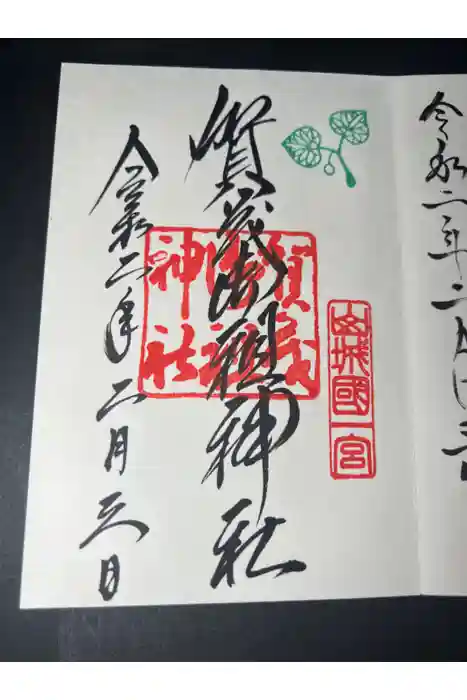 山城國一宮
賀茂御祖神社
賀茂御祖神社
令和二年二月三日
令和二年二月